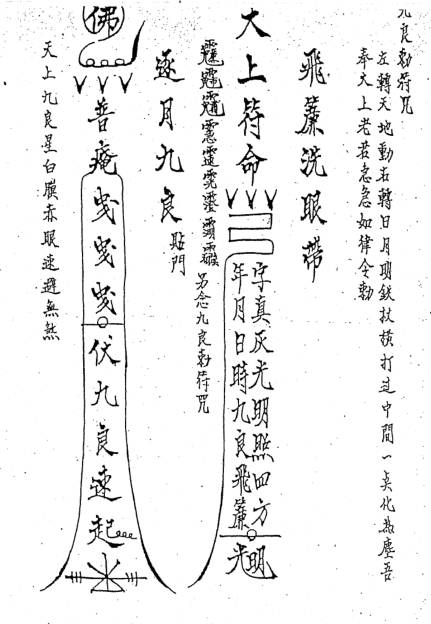 九良勅符咒
左轉天地動右轉日月明鉄杖橫打過中間一点化為塵吾
奉大上老君急急如律令勅
飛簾洗眼帶
大上符命
字真灰光明照四方
年月日時九良飛簾
光明
另念九良勅符咒
逐月九良
貼門
佛
普庵
曳曳曳
伏九良速起
天上九良星白臉赤眼速避無煞